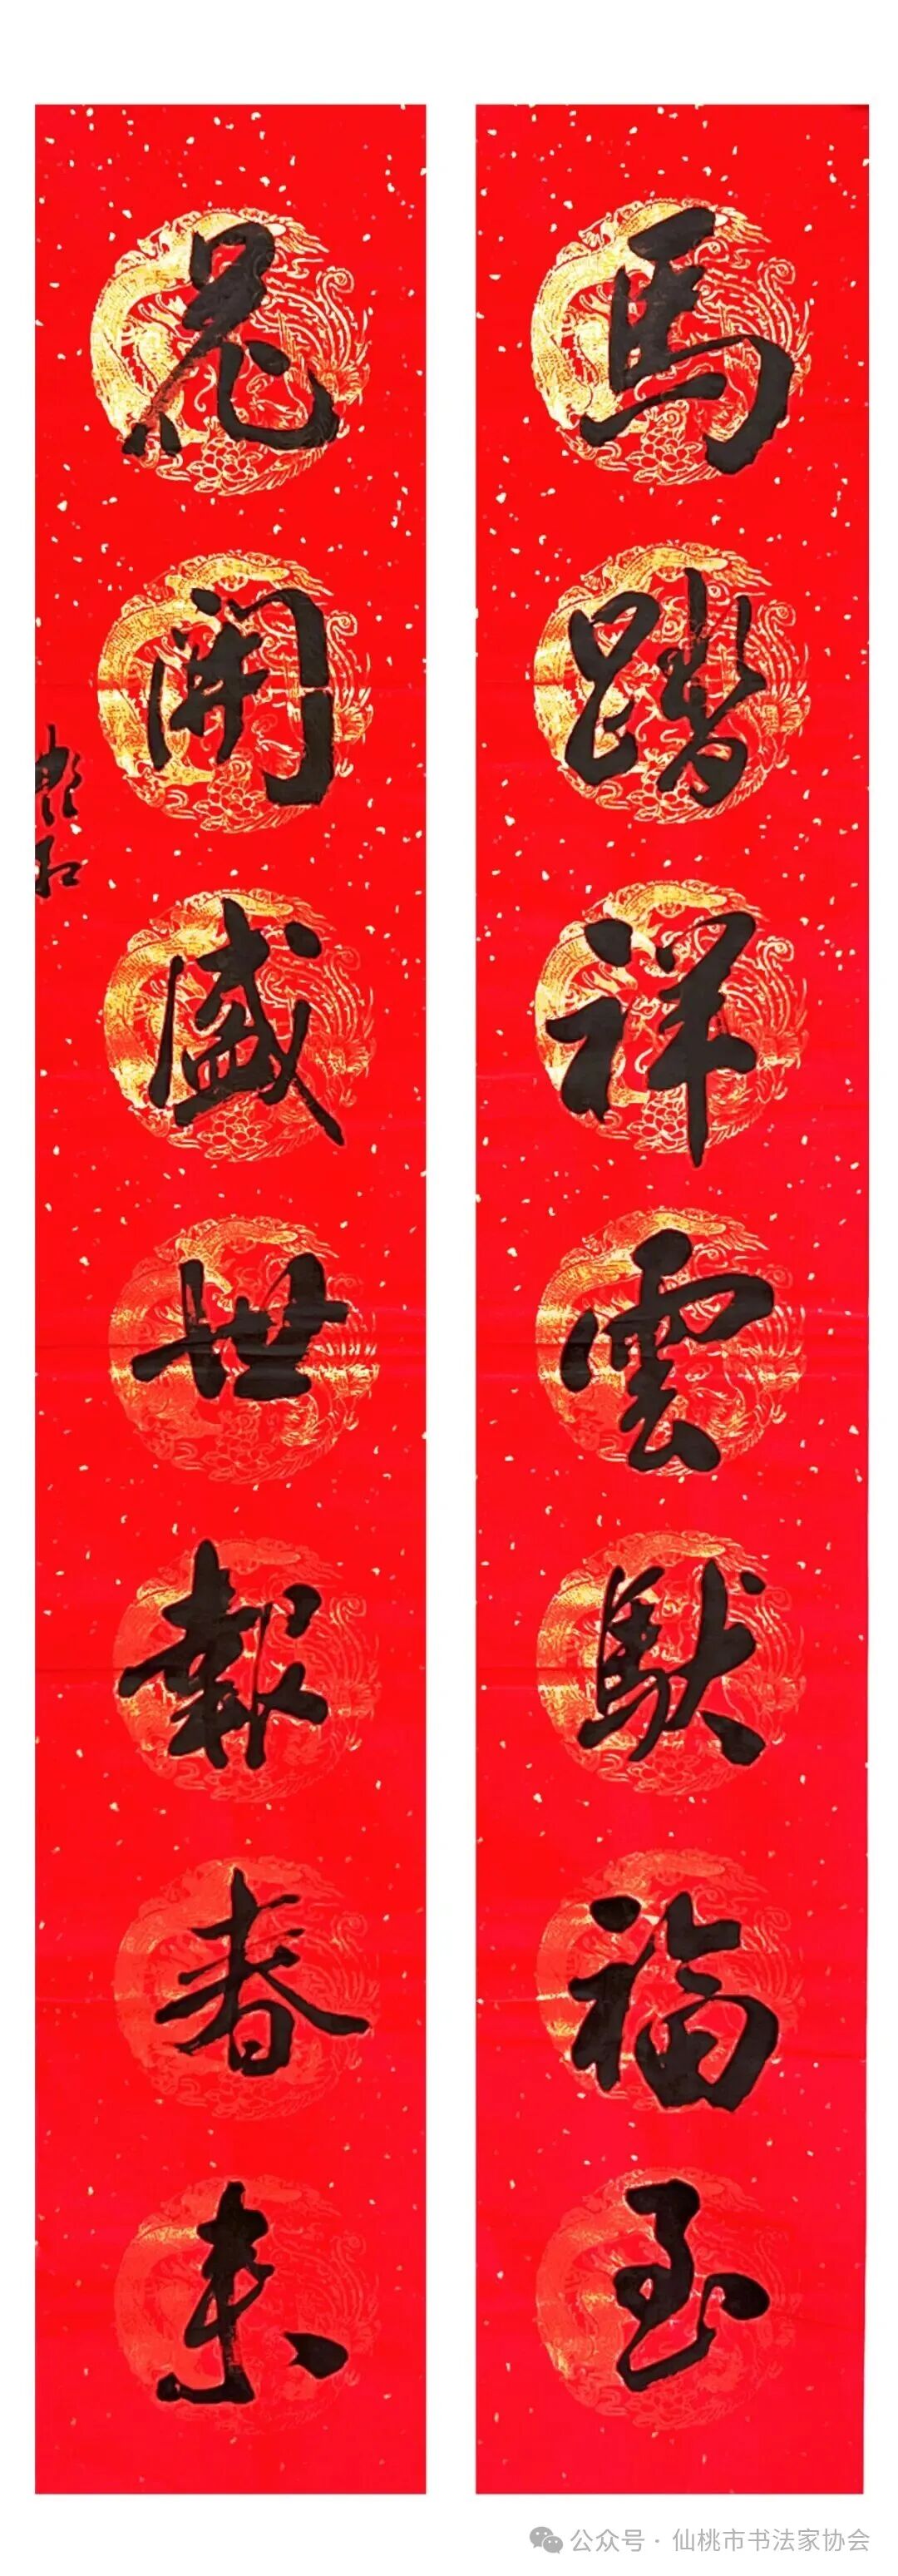 馬踏祥雲馱福至
花開盛世報春來
公众号 · 仙桃市书法家协会